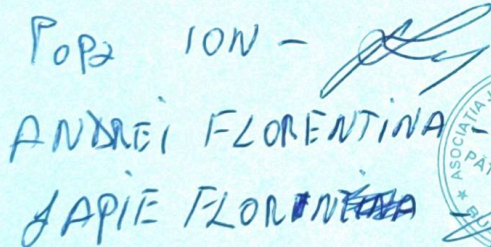 Popa ION -
ANDREI FLORENTINA -
JAPIE FLORIN
ASOCIATIA